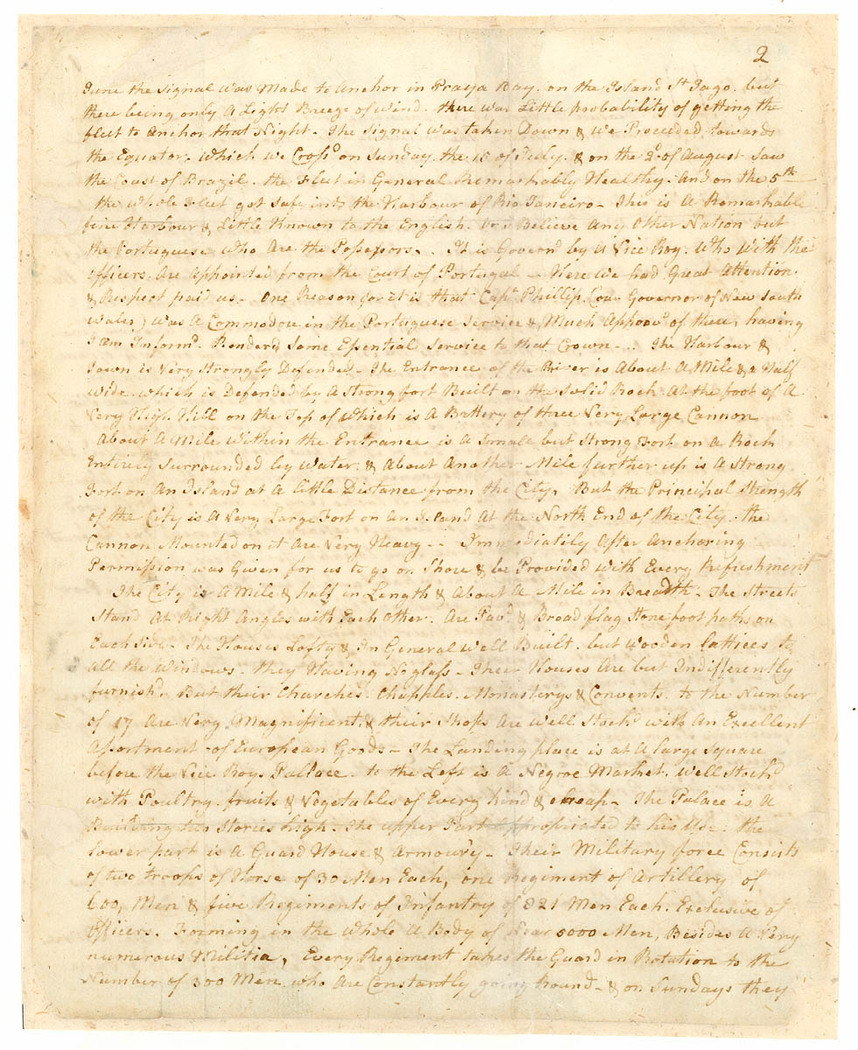 2
June the Signal was Made to Anchor in Praya Bay, on the Island St Jago. but
there being only A Light Breeze of wind. there was Little probability of getting the
fleet to Anchor that Night. The Signal was taken Down & we Proceeded towards
the Equator. Which we Cross'd on Sunday the 15 of July. & on the 2d of August Saw
the Coast of Brazil. the fleet in General Remarkably Healthy. And on the 5th
the whole fleet got Safe into the Harbour of Rio Janeiro - This is A Remarkable
fine Harbour & Little Known to the English. Or I Believe Any Other Nation but
the Portuguese who Are the Possessors. . It is Govern'd by A Vice Roy. Who with the
Officers Are Appointed from the Court of Portugal - Here we had Great Attention
& Respect paid us - One Reason for it is that Capt Phillip (our Governor of New South
Wales) was A Commodore in the Portuguese Service & Much Approv'd of there, having
I am Inform'd. Render'd Some Essential Service to that Crown - . The Harbour &
Town is Very Strongly Defended - The Entrance of the River is About A Mile & a Half
wide. which is Defended by A Strong fort Built on the Solid Rock At the foot of A
Very High Hill on the Top of Which is A Battery of three Very Large Cannon
About A Mile within the Entrance is A Small but Strong Fort on A Rock
Entirely Surrounded by Water. & About Another Mile further up is A Strong
Fort on An Island at A little Distance from the City. But the Principal Strength
of the City is A Very Large Fort on An Island At the North End of the City. the
Cannon Mounted on it Are Very Heavy - - Immediatily After Anchoring
Permission was Given for us to go on Shore & be Provided with Every Refreshment
The City is A Mile & half in Length & About A Mile in Breadth - The Streets
Stand At Right Angles with Each Other. Are Pav'd & Broad flag Stone foot paths on
Each Side - The Houses Lofty & In General Well Built. but Wooden lattices to
all the Windows. they Having No glass - Their Houses Are but Indifferently
furnish'd. But their Churches. Chapples. Monasterys & Convents. to the Number
of 17 Are Very Magnificent, & their Shops Are well Stock'd with An Excellent
Assortment of European Goods - The Landing place is at A large Square
before the Vice Roys Pallace. to the Left is A Negroe Market. Well Stock'd
with Poultry. fruits & Vegetables of Every kind & cheap - The Palace is A
Building two Stories high. The upper Part Appropriated to his Use. the
lower part is A Guard House & Armoury - Their Military force Consists
of two troops of Horse of 30 Men Each, one Regiment of Artillery of
600, Men & five Regiments of Infantry of 821 Men Each. Exclusive of
Officers. Forming in the Whole A Body of Near 5000 Men, Besides A Very
numerous Militia, Every Regiment takes the Guard in Rotation to the
Number of 300 Men who Are Constantly going Round - & on Sundays they